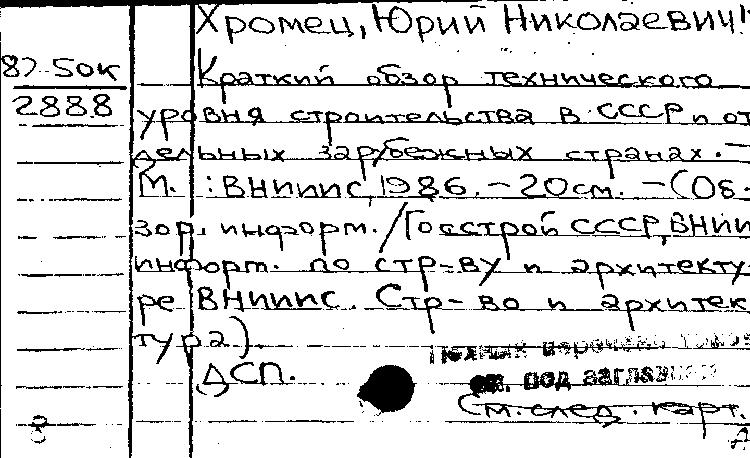 Хромец, Юрий Николаевич!
87-50к
2888
Краткий обзор технического
уровня строительства в СССР и от
дельных зарубежных странах. —
М. : ВНИИИС, 1986. — 20 см. — (Об-
зор. информ. / Госстрой СССР, ВНИИ
информ. по стр-ву и архитекту-
ре ВНИИИС. Стр-во и архитек
тура).
ДСП.
под заглавием
См. след. карт.
8
А